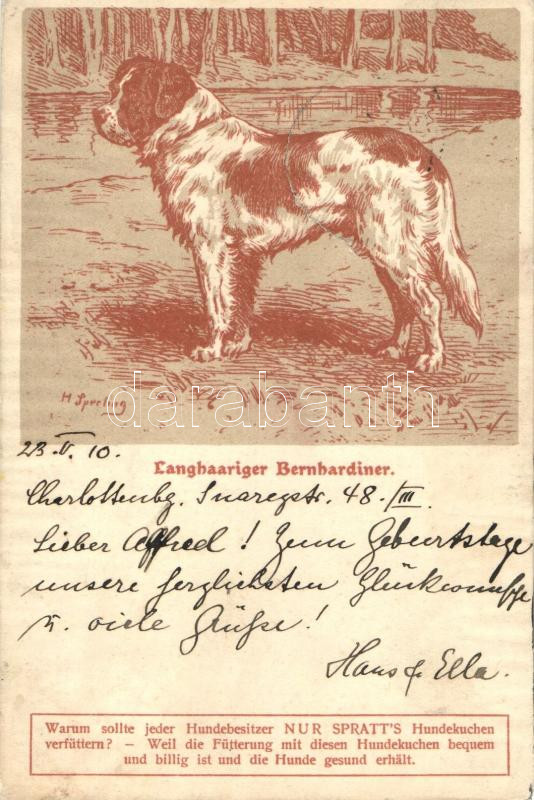 H Sperling
darabanth
23. V. 10.
Langhaariger Bernhardiner.
Charlottenbg. Suarezstr. 48./III
Lieber Alfred! Zum Geburtstage
unsere herzlichsten Glückwünsche
u. viele Grüße!
Hans & Ella.
Warum sollte jeder Hundebesitzer NUR SPRATT'S Hundekuchen
verfüttern? – Weil die Fütterung mit diesen Hundekuchen bequem
und billig ist und die Hunde gesund erhält.